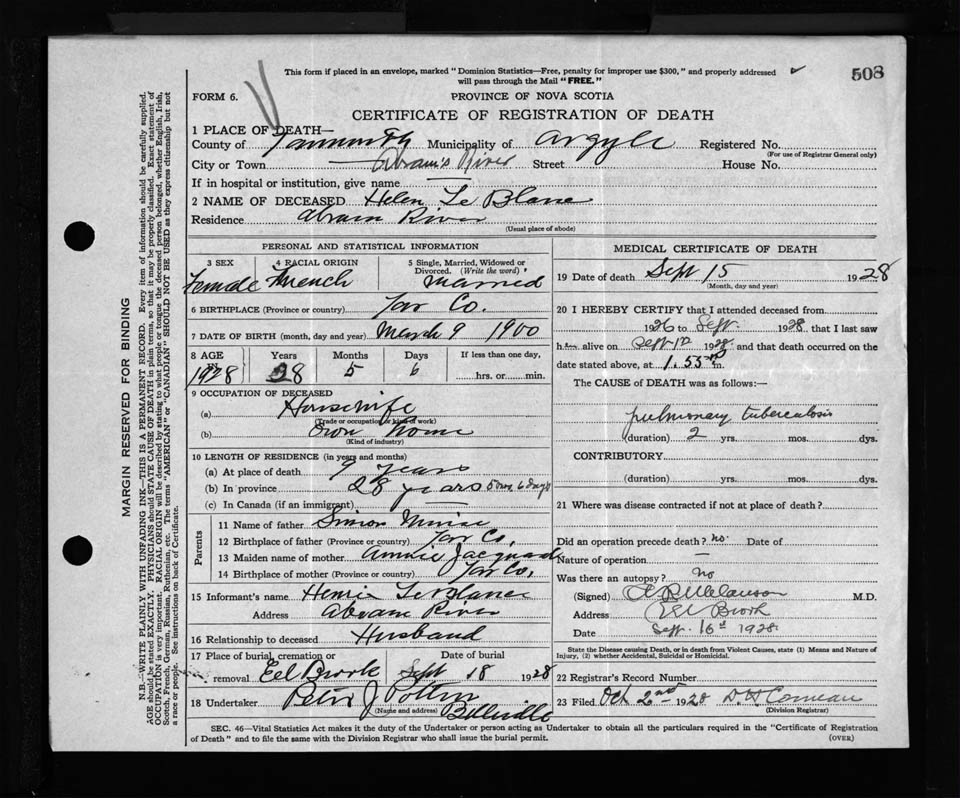 This form if placed in an envelope, marked "Dominion Statistics—Free, penalty for improper use $300," and properly addressed
will pass through the Mail "FREE."
508
FORM 6.
PROVINCE OF NOVA SCOTIA
CERTIFICATE OF REGISTRATION OF DEATH
1 PLACE OF DEATH—
County of Yarmouth Municipality of Argyle Registered No.
(For use of Registrar General only)
City or Town Abram's River Street House No.
If in hospital or institution, give name —
2 NAME OF DECEASED Helen Le Blanc
Residence Abram River
(Usual place of abode)
PERSONAL AND STATISTICAL INFORMATION
3 SEX 4 RACIAL ORIGIN 5 Single, Married, Widowed or Divorced. (Write the word)
Female French Married
6 BIRTHPLACE (Province or country) Yar Co.
7 DATE OF BIRTH (month, day and year) March 9 1900
8 AGE Years Months Days If less than one day,
1928 28 5 6 hrs. or min.
9 OCCUPATION OF DECEASED
(a) Housewife
(Trade or occupation or kind of work)
(b) Own home
(Kind of industry)
10 LENGTH OF RESIDENCE (in years and months)
(a) At place of death 9 years
(b) In province 28 years 5 mos, 6 days
(c) In Canada (if an immigrant) —
Parents
11 Name of father Simon Muise
12 Birthplace of father (Province or country) Yar Co,
13 Maiden name of mother Annie Jacquard
14 Birthplace of mother (Province or country) Yar Co,
15 Informant's name Henrie LeBlanc
Address Abram River
16 Relationship to deceased Husband
17 Place of burial, cremation or Date of burial
removal Eel Brook Sept 18 1928
18 Undertaker Peter J Pottier
(Name and address) Belleville
MEDICAL CERTIFICATE OF DEATH
19 Date of death Sept 15 1928
(Month, day and year)
20 I HEREBY CERTIFY that I attended deceased from
1926 to Sept. 1928, that I last saw
h alive on Sept 1928 and that death occurred on the
date stated above, at 1.55 m.
The CAUSE OF DEATH was as follows:—
pulmonary tuberculosis
(duration) 2 yrs. mos. dys.
CONTRIBUTORY
(duration) yrs. mos. dys.
21 Where was disease contracted if not at place of death?
Did an operation precede death? no. Date of
Nature of operation —
Was there an autopsy? no
(Signed) Melanson M.D.
Address Eel Brook
Date Sept. 16th 1928
State the Disease causing Death, or in death from Violent Causes, state (1) Means and Nature of
Injury, (2) whether Accidental, Suicidal or Homicidal.
22 Registrar's Record Number
23 Filed Oct 2nd 1928 D. H. Comeau
(Division Registrar)
SEC. 46—Vital Statistics Act makes it the duty of the Undertaker or person acting as Undertaker to obtain all the particulars required in the "Certificate of Registration
of Death" and to file the same with the Division Registrar who shall issue the burial permit.
(OVER)
MARGIN RESERVED FOR BINDING
N.B.—WRITE PLAINLY WITH UNFADING INK—THIS IS A PERMANENT RECORD. Every item of information should be carefully supplied.
AGE should be stated EXACTLY. PHYSICIANS should STATE CAUSE OF DEATH in plain terms, so that it may be properly classified. Exact statement of
OCCUPATION is very important. RACIAL ORIGIN will be described by stating to what people or tongue the deceased person belonged, whether English, Irish,
Scotch, French, German, Russian, Ruthenian, etc. The terms "AMERICAN" or "CANADIAN" SHOULD NOT BE USED as they express citizenship but not
a race or people. See instructions on back of Certificate.